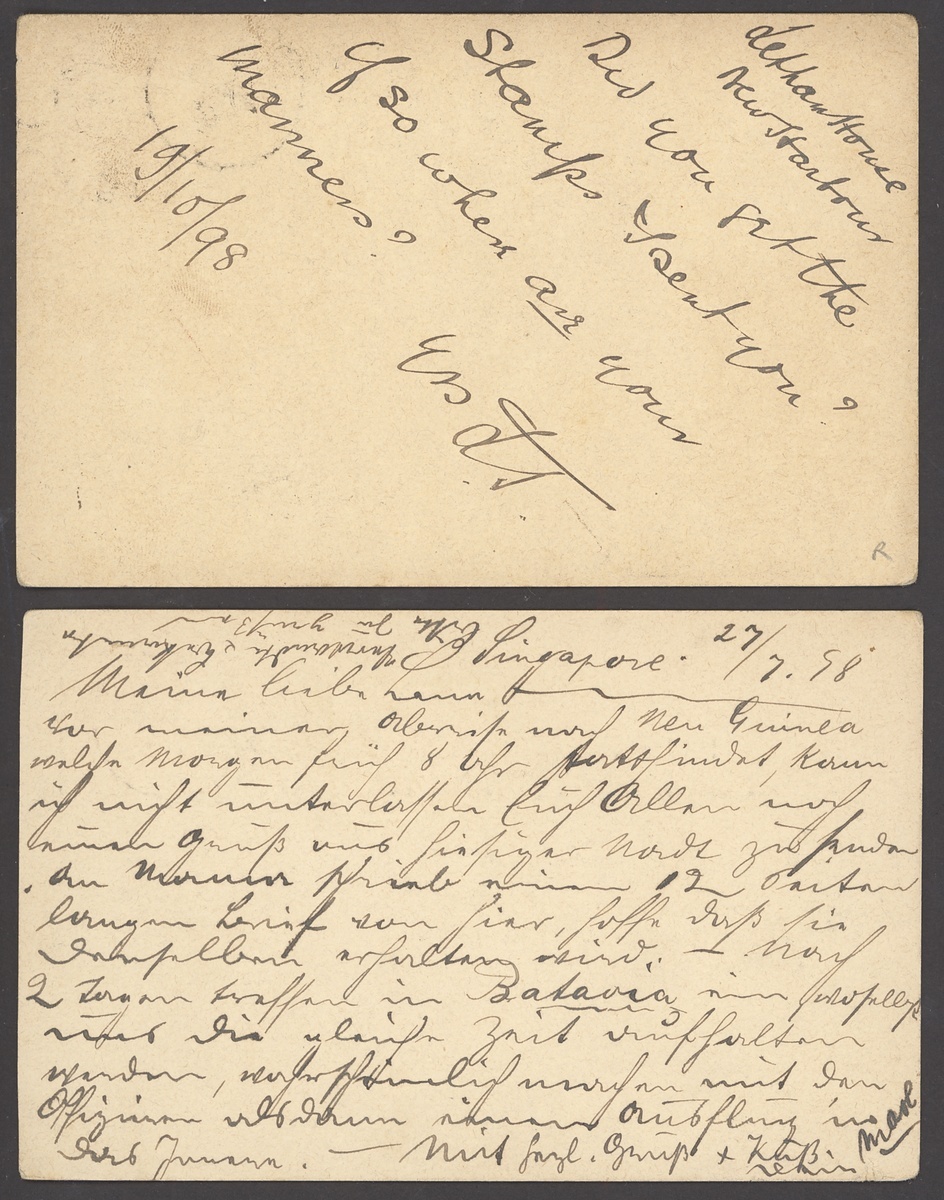 House
New Harbour
Did you get the
Stamps I sent you?
If so when are your
manners?
19/10/98
R
zu grüßen
Singapore. 27/7.98
Meine liebe
vor meiner Abreise nach Neu Guinea
welche Morgen früh 8 Uhr stattfindet, kann
ich nicht unterlassen Euch Allen noch
einen Gruß aus hiesiger Stadt zu senden
An Mama schrieb einen 12 Seiten
langen Brief von hier, hoffe daß sie
denselben erhalten wird. – Nach
2 Tagen treffen in Batavia ein woselbst
uns die gleiche Zeit aufhalten
werden, wahrscheinlich machen mit den
Offizieren alsdann einen Ausflug in
das Innere. — Mit herzl. Gruß + Kuß
Dein
Max